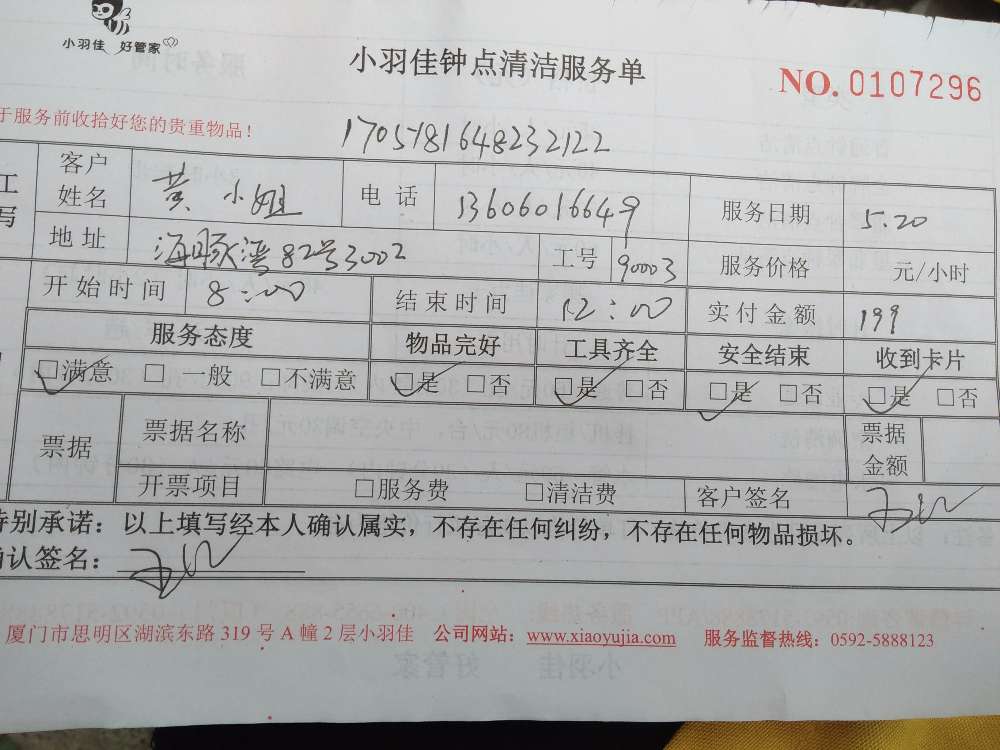 小羽佳 好管家
小羽佳钟点清洁服务单
NO.0107296
于服务前收拾好您的贵重物品！
1705181648232122
客户姓名 黄小姐 电话 13606016649 服务日期 5.20
地址 海豚湾82号3002 工号 90003 服务价格 元/小时
开始时间 8:00 结束时间 12:00 实付金额 199
服务态度 物品完好 工具齐全 安全结束 收到卡片
□满意 □一般 □不满意 □是 □否 □是 □否 □是 □否 □是 □否
票据 票据名称 票据金额
开票项目 □服务费 □清洁费 客户签名
特别承诺：以上填写经本人确认属实，不存在任何纠纷，不存在任何物品损坏。
确认签名：
厦门市思明区湖滨东路 319 号 A 幢 2 层小羽佳 公司网站：www.xiaoyujia.com 服务监督热线：0592-5888123